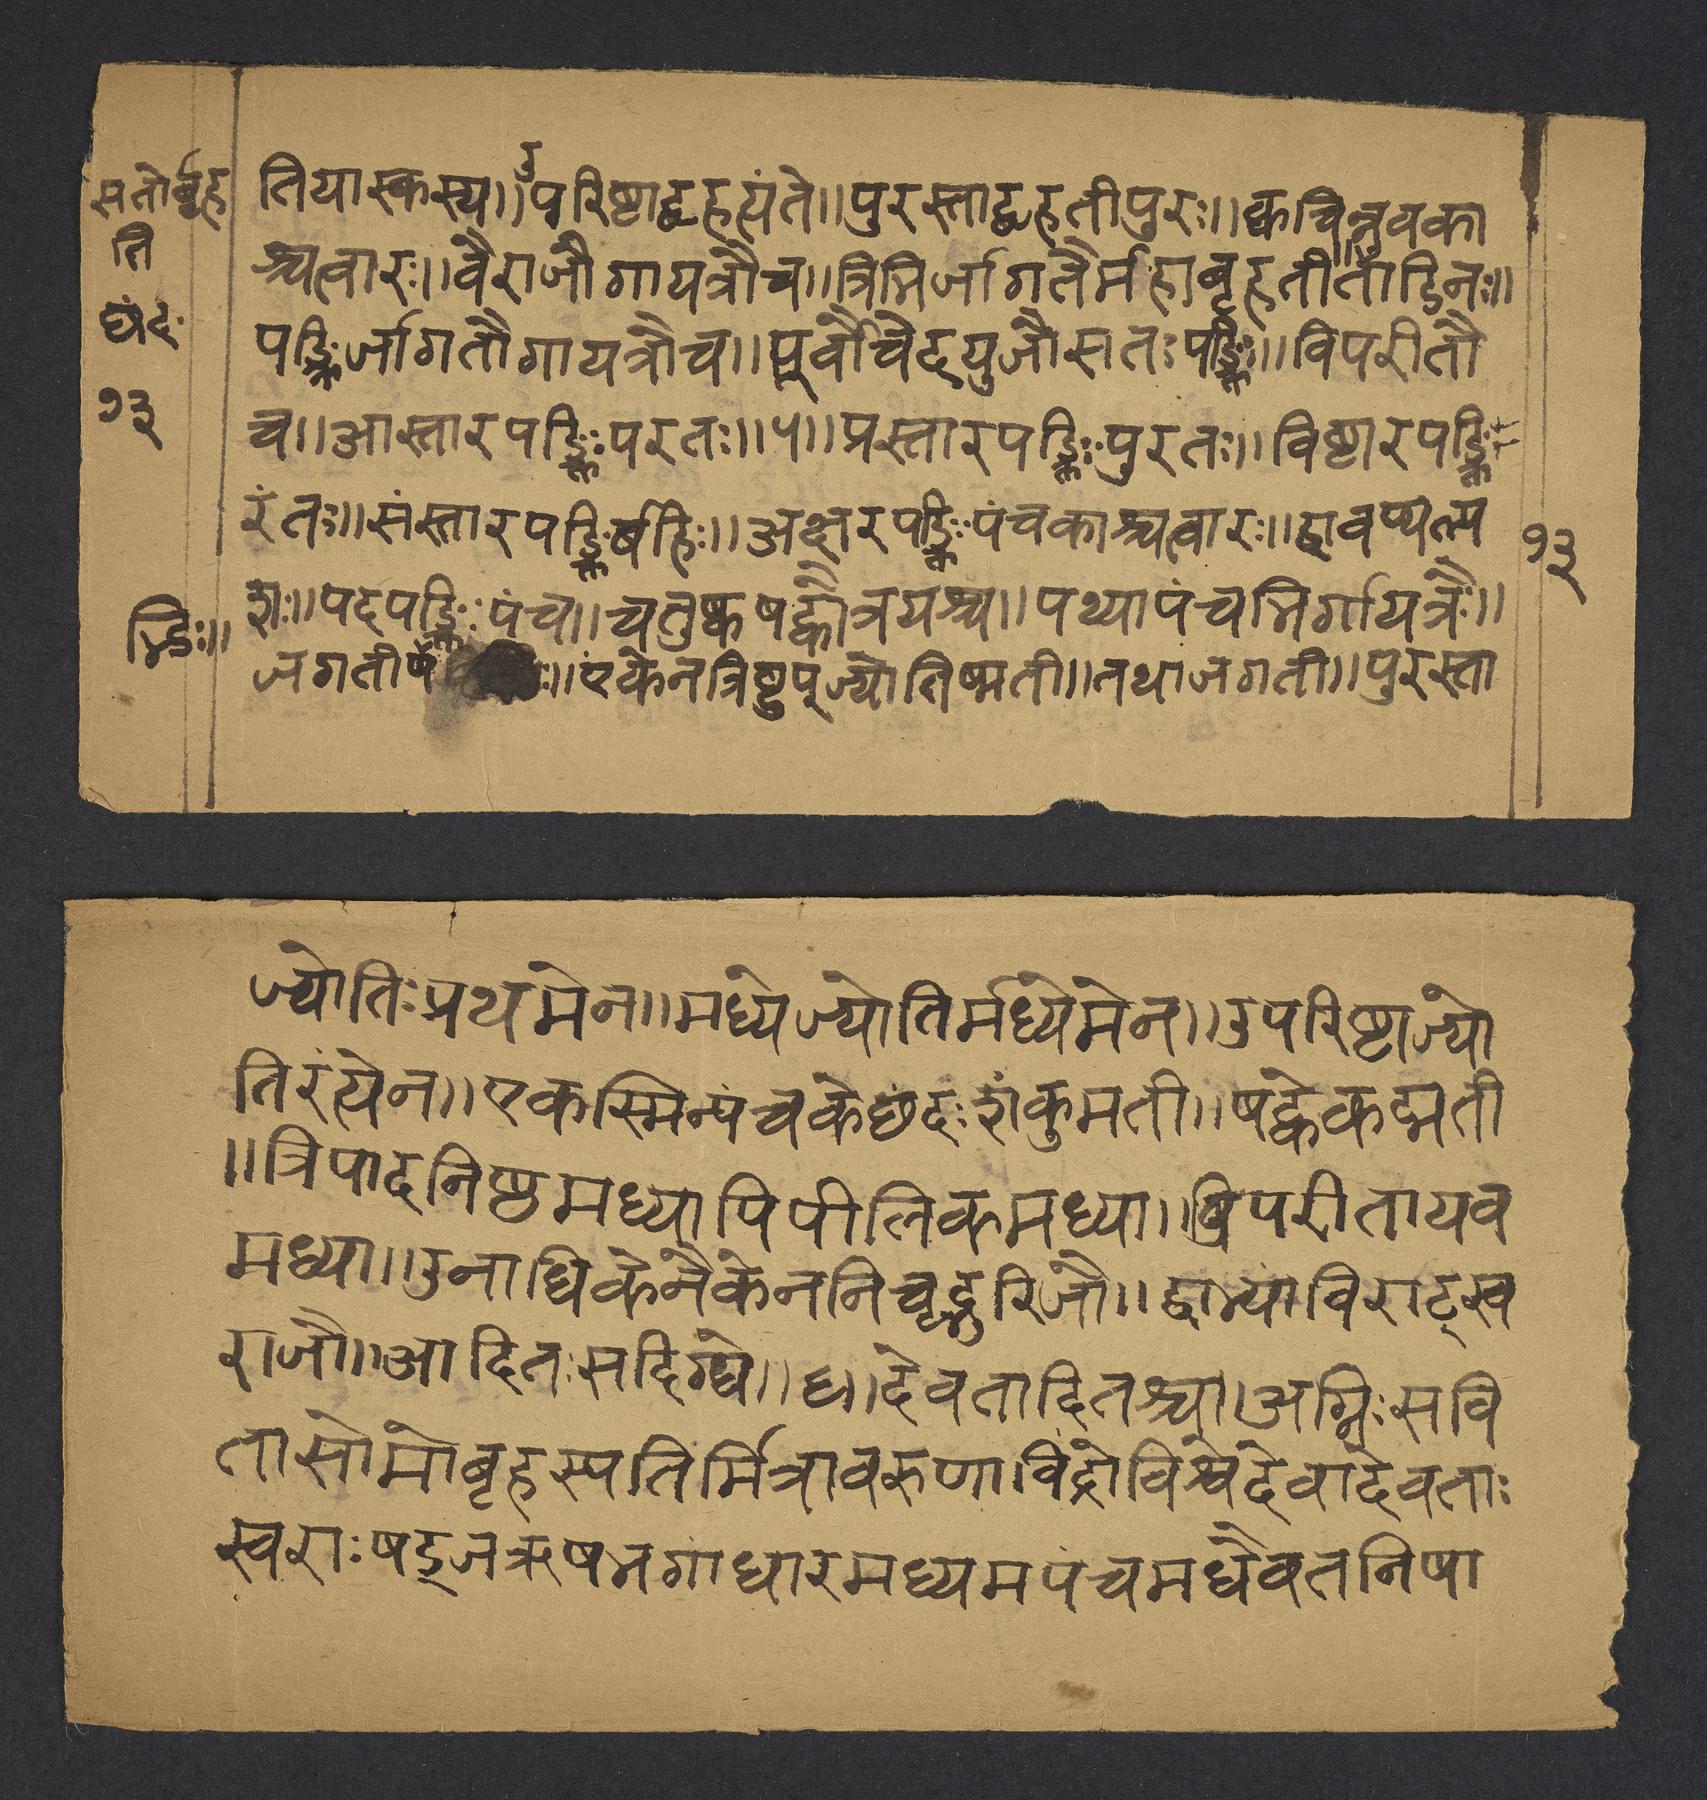 सतोर्बृह
ति
छंद
१३
ड्भिः॥
१३
उ
तियास्कस्य॥परिष्टाद्बृहत्यंते॥पुरस्ताद्बृहतीपुरः॥क्वचिन्नवका
श्चत्वारः॥वैराजौगायत्रौच॥त्रिभिर्जागतैर्महाबृहती॥ताडिनः॥
पङ्क्तिर्जागतौगायत्रौच॥पूर्वौचेदयुजौसतःपङ्क्तिः॥विपरीतौ
च॥आस्तारपङ्क्तिःपरतः॥५॥प्रस्तारपङ्क्तिःपुरतः॥विष्टारपङ्क्ति
रंतः॥संस्तारपङ्क्तिर्बहिः॥अक्षरपङ्क्तिःपंचकाश्चत्वारः॥द्वावप्यल्प
शः॥पदपङ्क्तिःपंच॥चतुष्कषट्कौत्रयश्च॥पथ्यापंचभिर्गायत्रैः॥
जगतीष ॥एकेनत्रिष्टुप्ज्योतिष्मती॥तथाजगती॥पुरस्ता
ज्योतिःप्रथमेन॥मध्येज्योतिर्मध्येमेन॥उपरिष्टाज्यो
तिरंत्येन॥एकस्मिन्पंचकेछंदःशंकुमती॥षट्केककद्मती
॥त्रिपादनिष्ठमध्यापिपीलिकमध्या॥विपरीतायव
मध्या॥उनाधिकेनैकेननिचृद्भुरिजौ॥द्वाभ्यांविराट्स्व
राजौ॥आदितःसदिग्धे॥६॥देवतादितश्च॥अग्निःसवि
तासोमोबृहस्पतिर्मित्रावरुणाविंद्रोविश्वेदेवादेवताः
स्वराःषड्जऋषभगांधारमध्यमपंचमधैवतनिषा